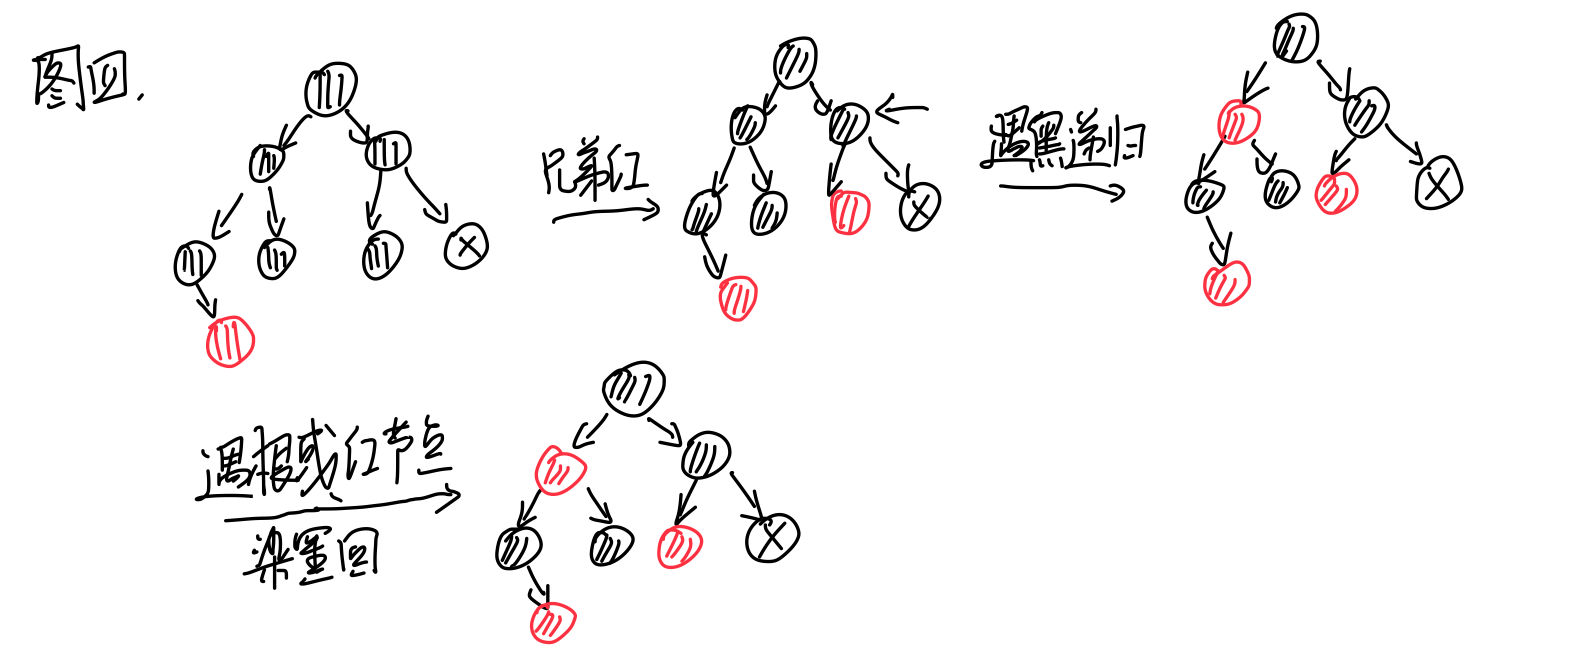 图四.
兄弟红
遇黑递归
遇根或红节点
染黑回